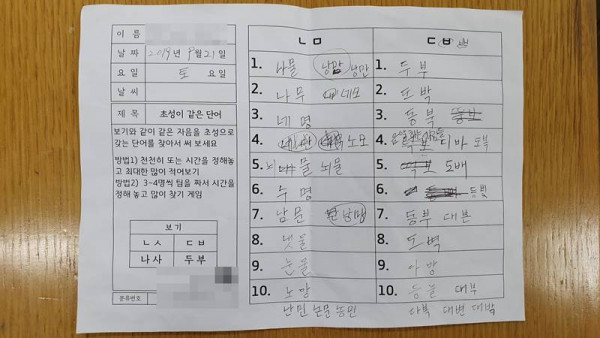 이 름
날 짜 2019년 9월 21일
요 일 토 요일
날 씨
제 목 초성이 같은 단어
보기와 같이 같은 자음을 초성으로
갖는 단어를 찾아서 써 보세요
방법1) 천천히 또는 시간을 정해놓
고 최대한 많이 적어보기
방법2) 3-4명씩 팀을 짜서 시간을
정해 놓고 많이 찾기 게임
보기
ㄴㅅ ㄷㅂ
나사 두부
분류번호
ㄴㅁ
1. 나물 낭만
2. 나무 네모
3. 네명
4. 노모
5. 뇌물
6. 수명
7. 남문
8. 냇물
9. 눈물
10. 노망
난민 논문 농민
ㄷㅂ
1. 두부
2. 또박
3. 동북
4. 디바
5. 도배
6.
7. 동부 대본
8. 도벽
9.
10. 대부
대변 대박